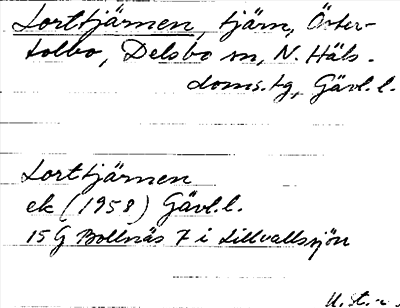 Lorttjärnen, tjärn, Öster-
tolbo, Delsbo sn, N. Häls.
doms.tg, Gävl.l.
Lorttjärnen
ek (1958) Gävl.l.
15G Bollnäs 7 i Lillvallsjön